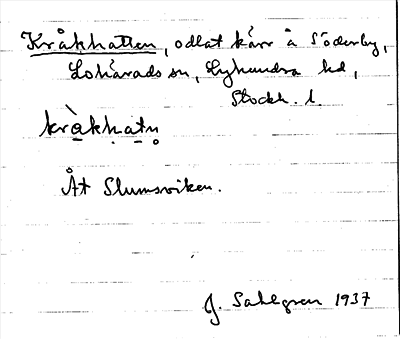 Kråkhatten, odlat kärr å Söderby,
Lohärads sn, Lyhundra hd,
Stockh. l.
kràkhatn̥
Åt Slumsviken.
J. Sahlgren 1937